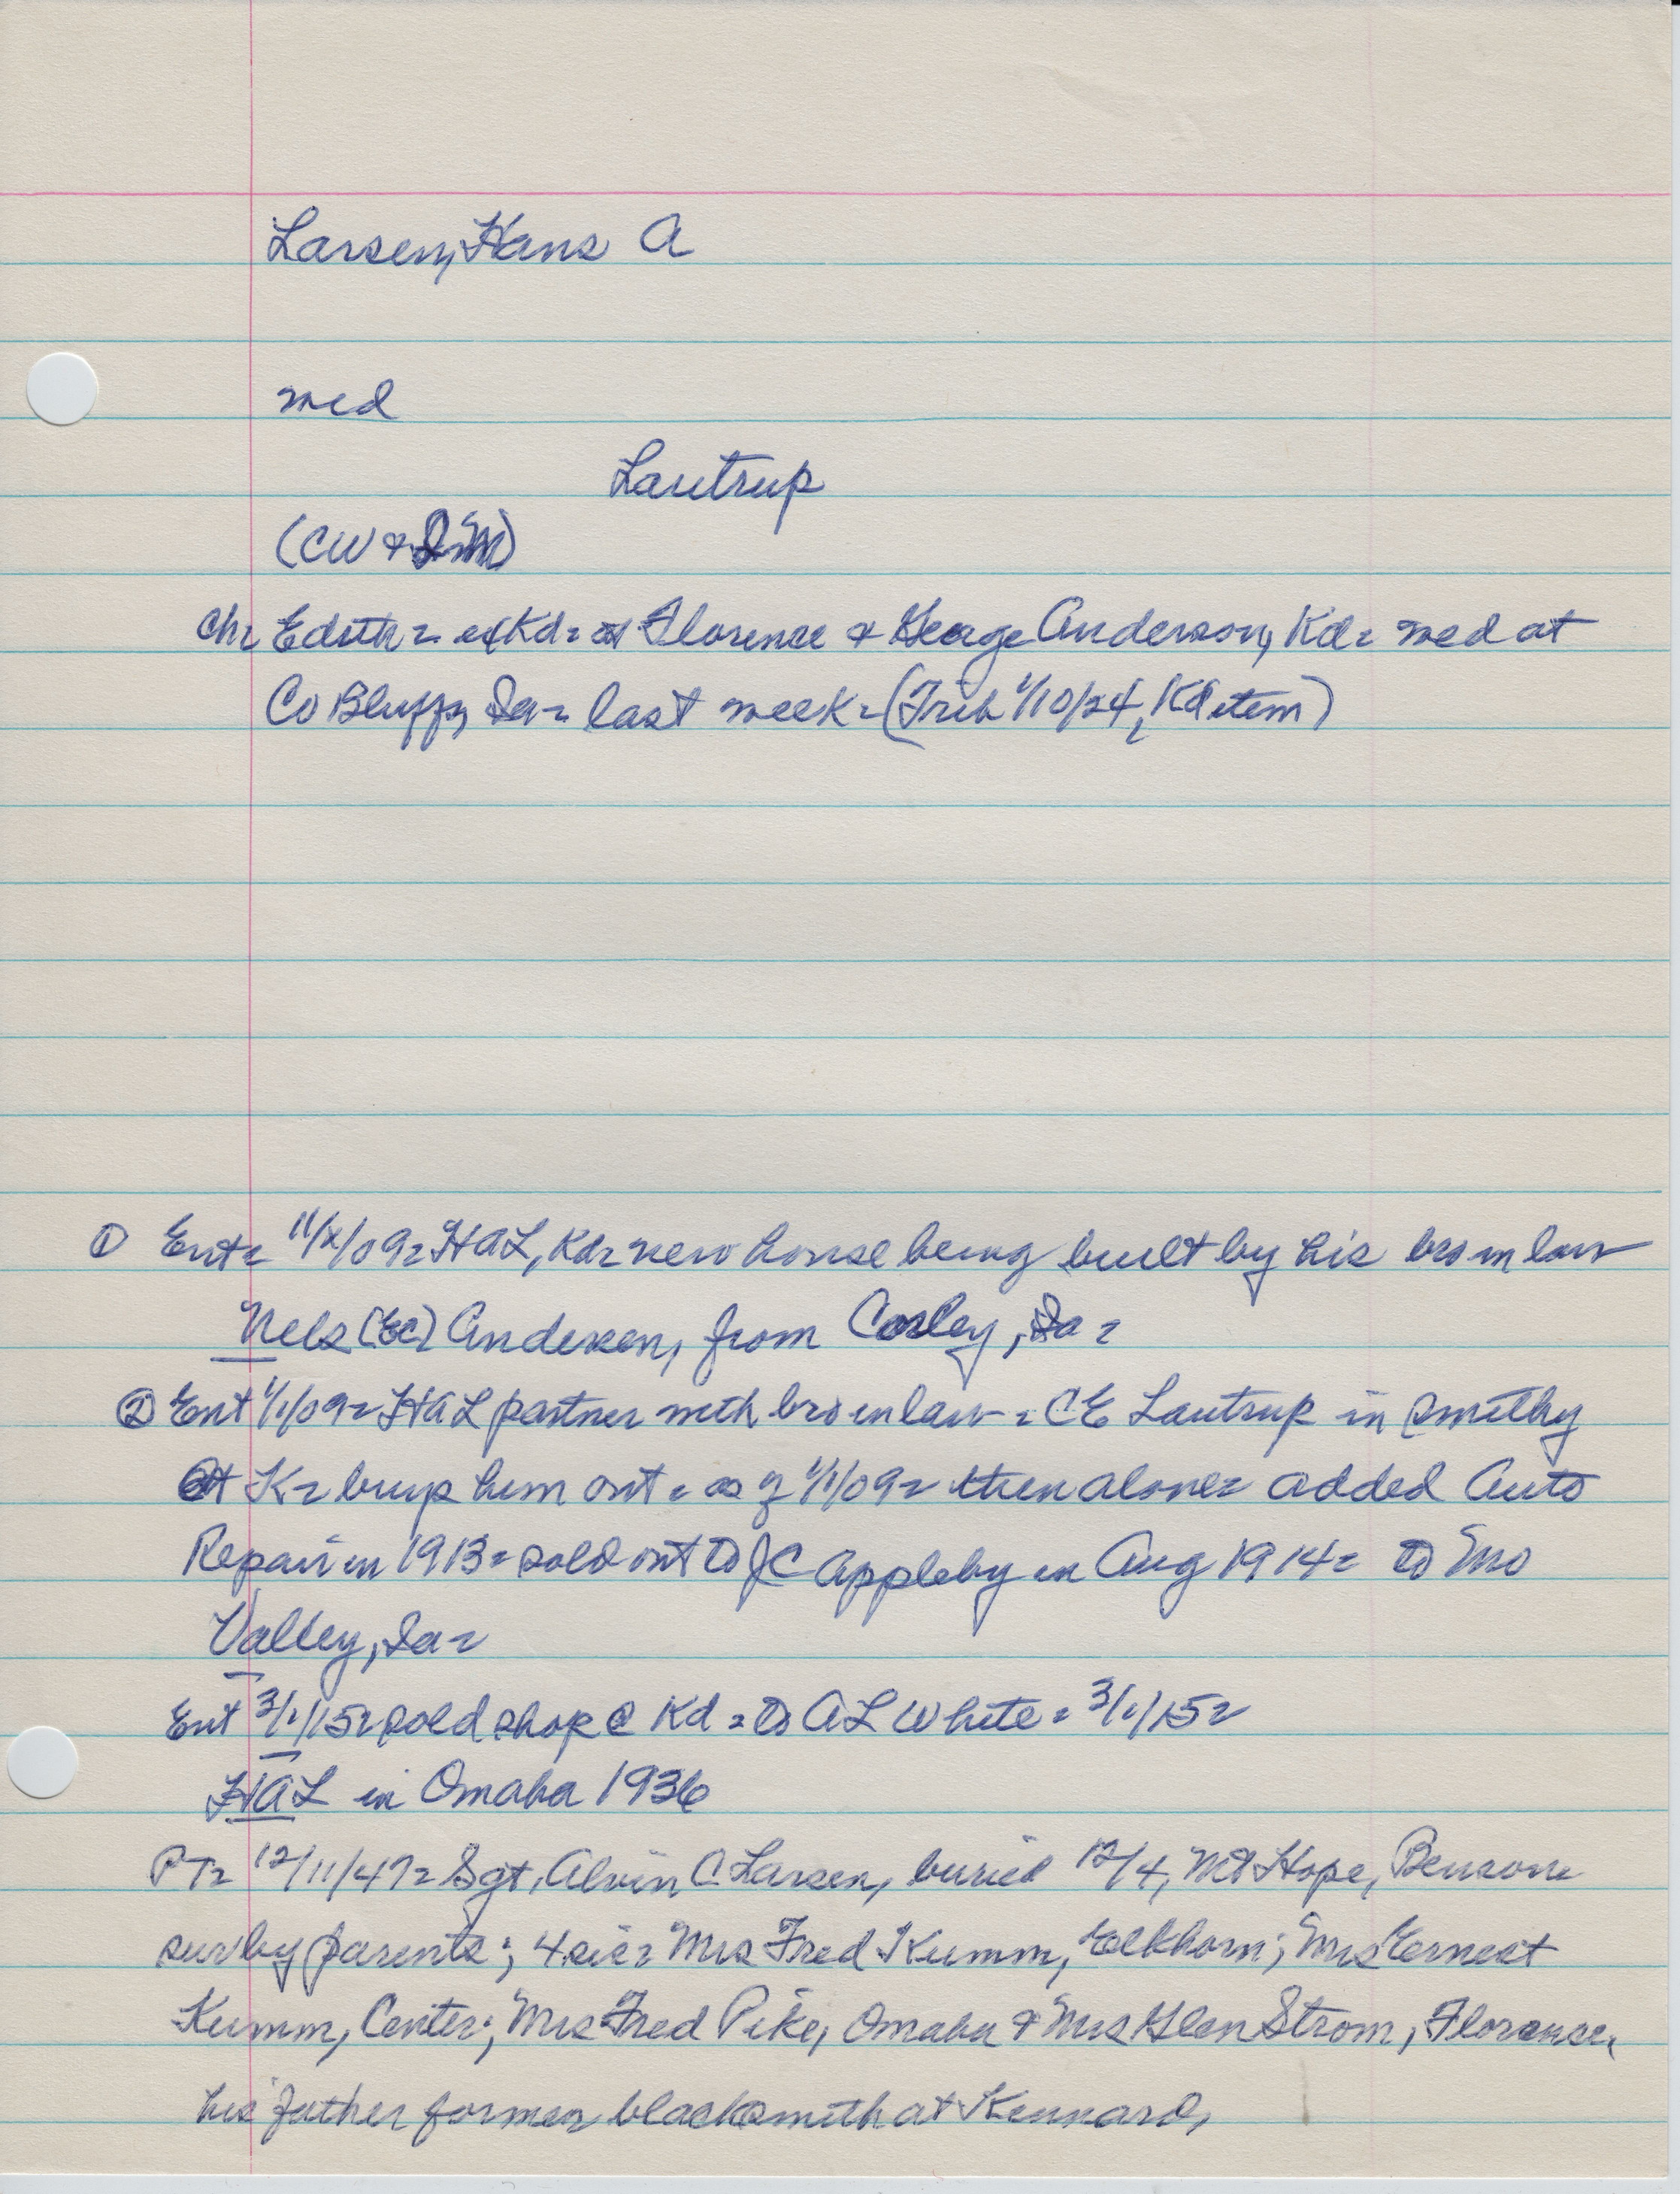 Larsen, Hans A
med
Lautrup
(CW &
Ch= Edith = of Kd = at Florence & George Anderson, Kd= med at
Co Bluffs, Ia = last week = (Trib 1/10/24, Kd item)
① Ent= 11/x/09= HAL, Kd= new house being built by his bro in law
Nels (EC) Andersen, from Corley, Ia =
② Ent 1/1/09= HAL partner with bro in law = CE Lautrup in smithy
at K= buys him out = as of 1/1/09= then alone= added Auto
Repair in 1913= sold out to JC Appleby in Aug 1914= to Mo
Valley, Ia=
Ent 3/1/15= sold shop @ Kd = to AL White = 3/1/15=
HAL in Omaha 1936
PT= 12/11/47= Sgt. Alvin C Larsen, buried 12/4, Mt Hope, Benson=
sur by parents; 4 sis= Mrs Fred Kumm, Elkhorn; Mrs Ernest
Kumm, Center; Mrs Fred Pike, Omaha & Mrs Glen Strom, Florence.
his father former blacksmith at Kennard,